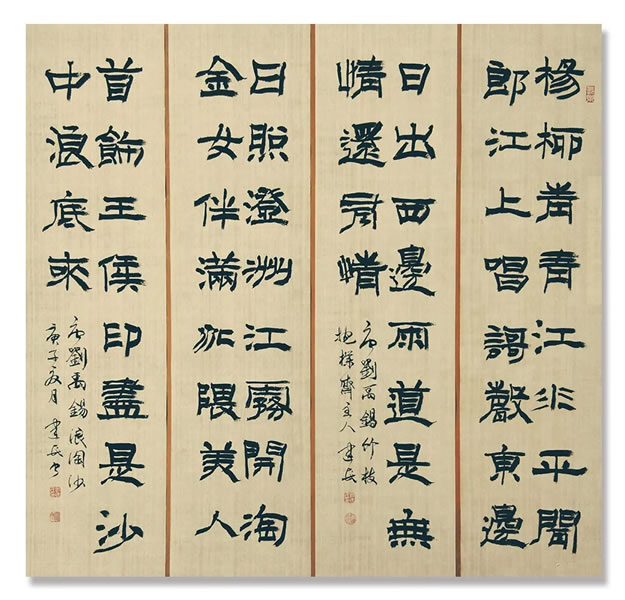 楊柳青青江水平聞
郎江上唱謌聲東邊
日出西邊雨道是無
情還有情
右劉禹錫竹枝
抱樸齋主人建
日照澄洲江霧開淘
金女伴滿江隈美人
首飾王侯印盡是沙
中浪底來
右劉禹錫浪淘沙
庚子夏月建